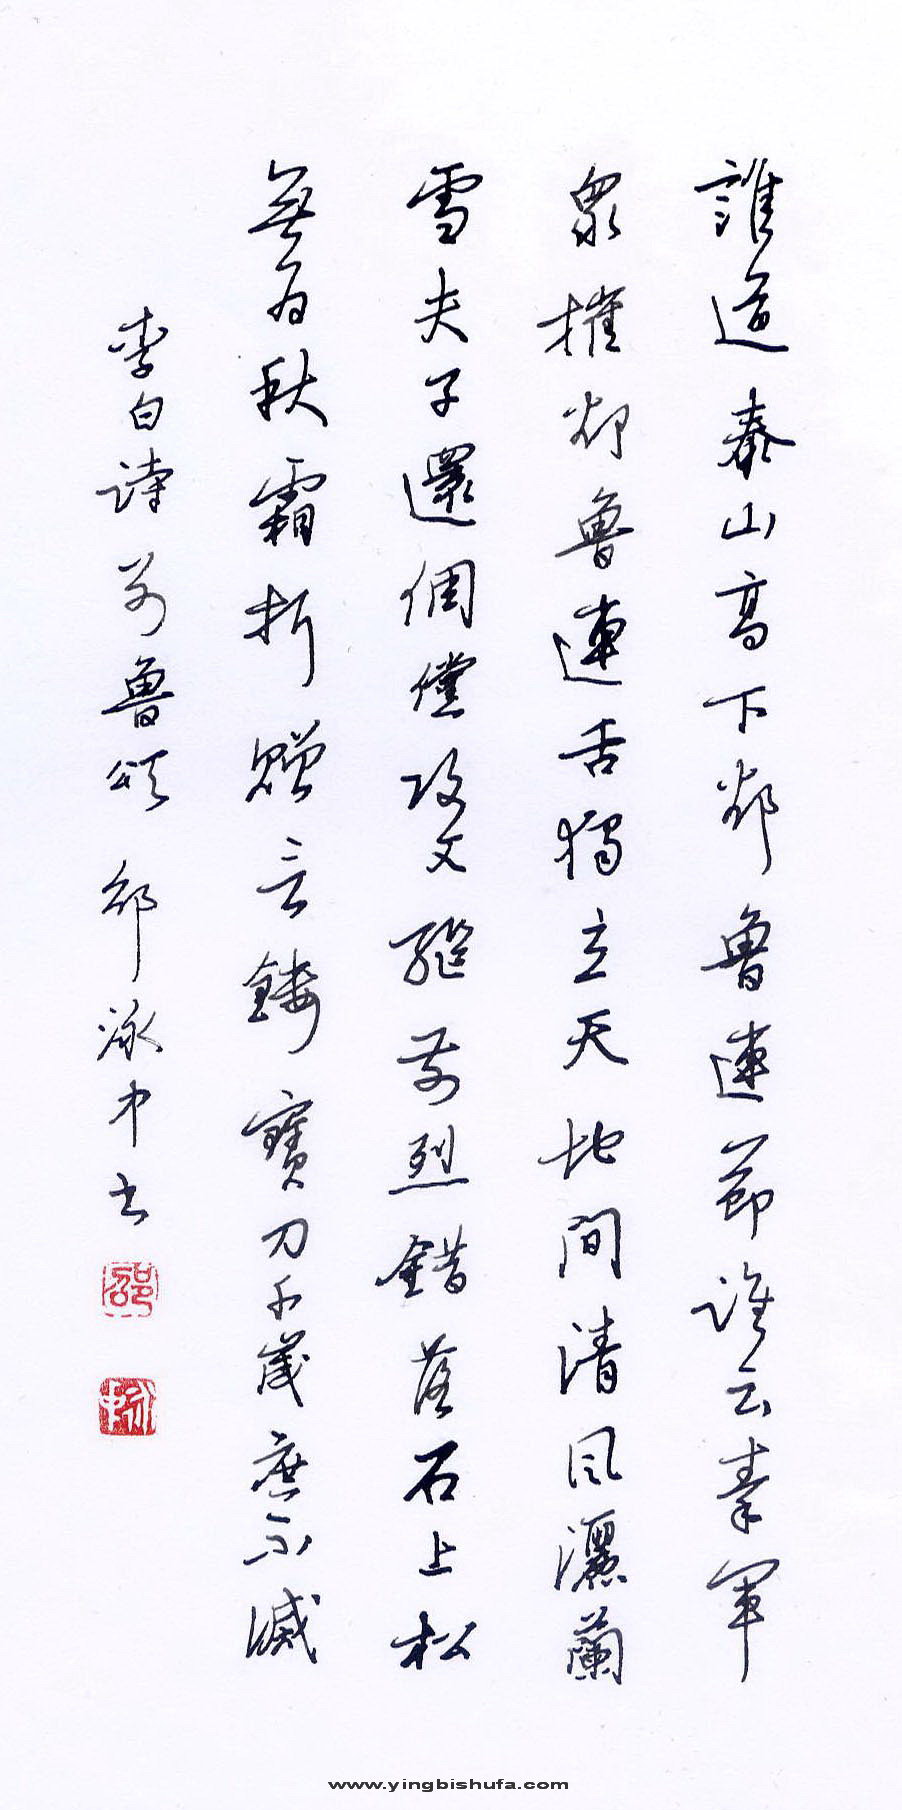 誰道泰山高下卻魯連節誰云秦軍
眾摧卻魯連舌獨立天地間清風灑蘭
雪夫子還倜儻攻文繼前烈錯落石上松
無為秋霜折贈言鏤寶刀千歲庶不滅
李白詩別魯頌 邵泳中书
邵
泳中
www.yingbishufa.com